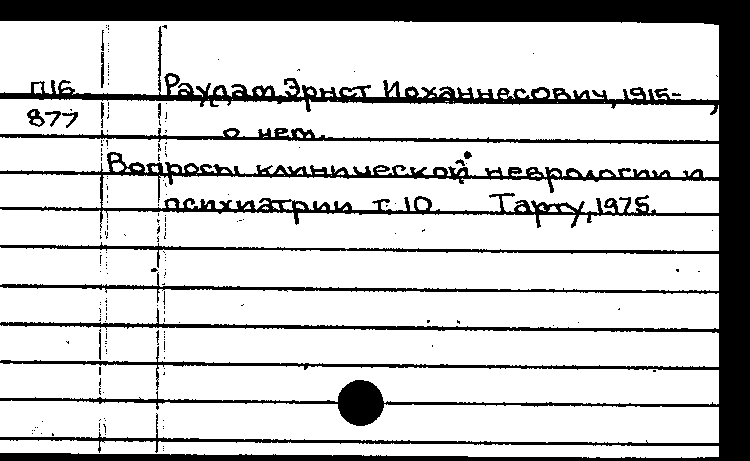 П16 Раудам, Эрнст Иоханнесович, 1915- ,
877 о нем.
Вопросы клинической неврологии и
психиатрии т. 10. Тарту, 1975.